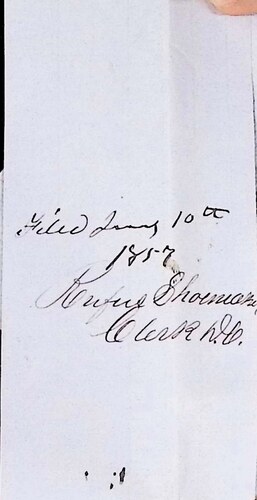 Filed June 10th
1857
Rufus Shoemaker
Clerk D.C.